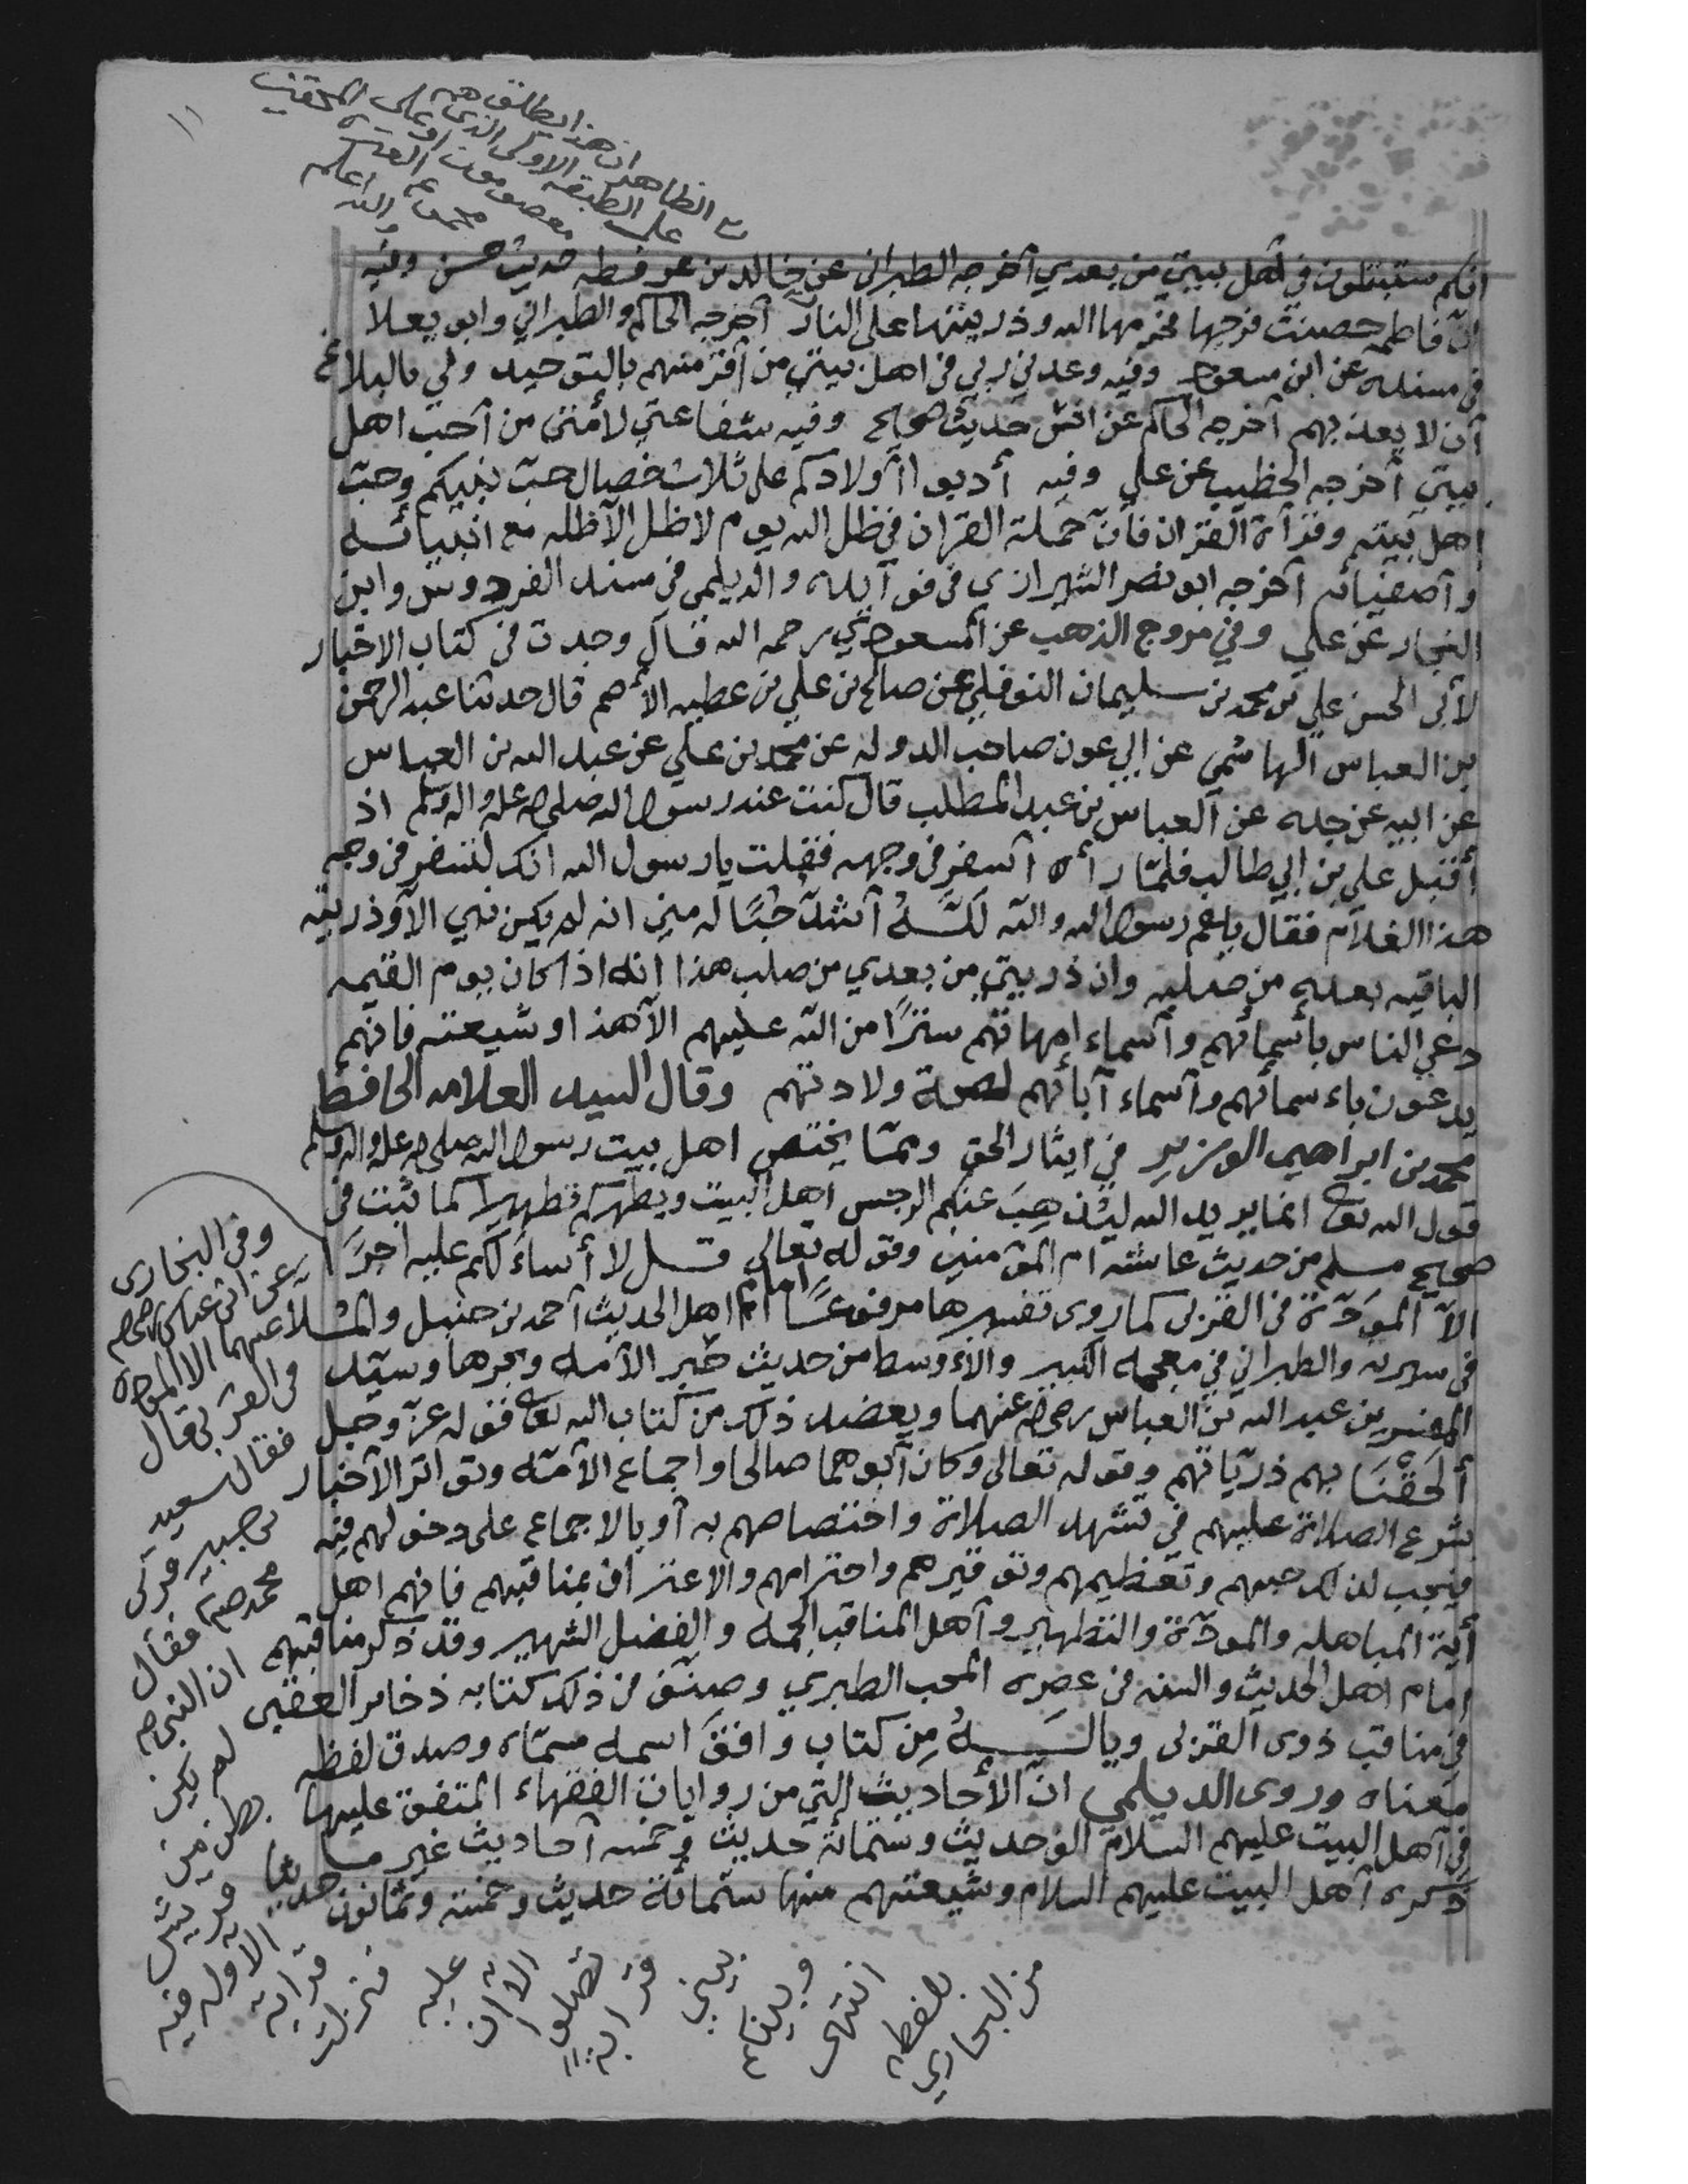 ١١
الظاهر ان هذا يطلق
على الطبقه الاولى الذين هم
معصومون او على
والله اعلم
انكم ستبتلون في اهل بيتي من بعدي أخرجه الطبراني عن خالد بن عرفطه حديث حسن وفيه
ان فاطمه حصنت فرجها فحرمها الله وذريتها على النار أخرجه الحاكم والطبراني وابو يعلا
في مسنده عن ابن مسعود وفيه وعدني ربي في اهل بيتي من أقر منهم بالتوحيد ولي بالبلاغ
أن لا يعذبهم أخرجه الحاكم عن انس حديث صحيح وفيه شفاعتي لأمتي من أحب اهل
بيتي أخرجه الخطيب عن علي وفيه أدبوا أولادكم على ثلاث خصال حب نبيكم وحب
اهل بيته وقرأة القرآن فان حملة القرآن في ظل الله يوم لا ظل الا ظله مع انبيائه
وأصفيائه أخرجه ابو نصر الشيرازي في فوآيده والديلمي في مسند الفردوس وابن
النجار عن علي وفي مروج الذهب عن المسعودي رحمه الله قال وجدت في كتاب الاخبار
لأبي الحسن علي بن محمد بن سليمان النوفلي عن صالح بن علي بن عطيه الأصم قال حدثنا عبد الرحمن
بن العباس الهاشمي عن ابي عون صاحب الدوله عن محمد بن علي عن عبد الله بن العباس
عن ابيه عن جده عن العباس بن عبد المطلب قال كنت عند رسول الله صلى الله عليه واله وسلم اذ
أقبل علي بن ابي طالب فلما رأه أسفر في وجهه فقلت يا رسول الله انك لتسفر في وجه
هذا الغلام فقال يا عم رسول الله والله لله أشد حبًا له مني انه لم يكن نبي الا وذريته
الباقيه بعده من صلبه وان ذريتي من بعدي من صلب هذا انه اذا كان يوم القيمه
دعي الناس بأسمائهم وأسماء امهاتهم سترًا من الله عليهم الا هذا وشيعته فانهم
يدعون باءسمائهم وأسماء آبائهم لصحة ولادتهم وقال السيد العلامه الحافظ
محمد بن ابراهيم الوزير في ايثار الحق ومما يختص اهل بيت رسول الله صلى الله عليه واله وسلم
قول الله تعالى انما يريد الله ليذهب عنكم الرجس اهل البيت ويطهركم تطهيرا كما ثبت في
صحيح مسلم من حديث عائشه ام المؤمنين وقوله تعالى قل لا أسألكم عليه اجرًا
الا المودة في القربى كما روى تفسيرها مرفوعًا امام اهل الحديث أحمد بن حنبل والملا
في سيرته والطبراني في معجمه الكبير والاءوسط من حديث حبر الأمه وبحرها وسيد
المفسرين عبد الله بن العباس رضي الله عنهما ويعضد ذلك من كتاب الله تعالى قوله عز وجل
ألحقنا بهم ذرياتهم وقوله تعالى وكان أبوهما صالحا واجماع الأمه وتواتر الأخبار
بشرع الصلاة عليهم في تشهد الصلاة واختصاصهم به أو بالاجماع على دخولهم فيه
فيجب لذلك حبهم وتعظيمهم وتوقيرهم واحترامهم والاعتراف بمناقبهم فانهم اهل
أية المباهله والمودة والتطهير وأهل المناقب الجمه والفضل الشهير وقد ذكر مناقبهم
امام اهل الحديث والسنه في عصره المحب الطبري وصنف في ذلك كتابه ذخائر العقبى
في مناقب ذوى القربى ويالــه من كتاب وافق اسمه مسماه وصدق لفظه
معناه وروى الديلمي ان الأحاديث التي من روايات الفقهاء المتفق عليها
في أهل البيت عليهم السلام الف حديث وستمائة حديث وخمسه أحاديث غير ما
ذكره أهل البيت عليهم السلام وشيعتهم منها ستمائة حديث وخمسة وثمانون حديثا
وفي البخارى
عن ابن عباس رضي الله
عنهما الا المودة
في القربى قال
فقال سعيد
بن جبير قربى
محمد صلم فقال
ان النبي صلم
لم يكن
بطن من
قريش
الا وله فيه
قرابة
فنزلت
عليه
الا ان
تصلوا
قرابة
بيني
وبينكم
انتهى
بلفظه
من البخاري